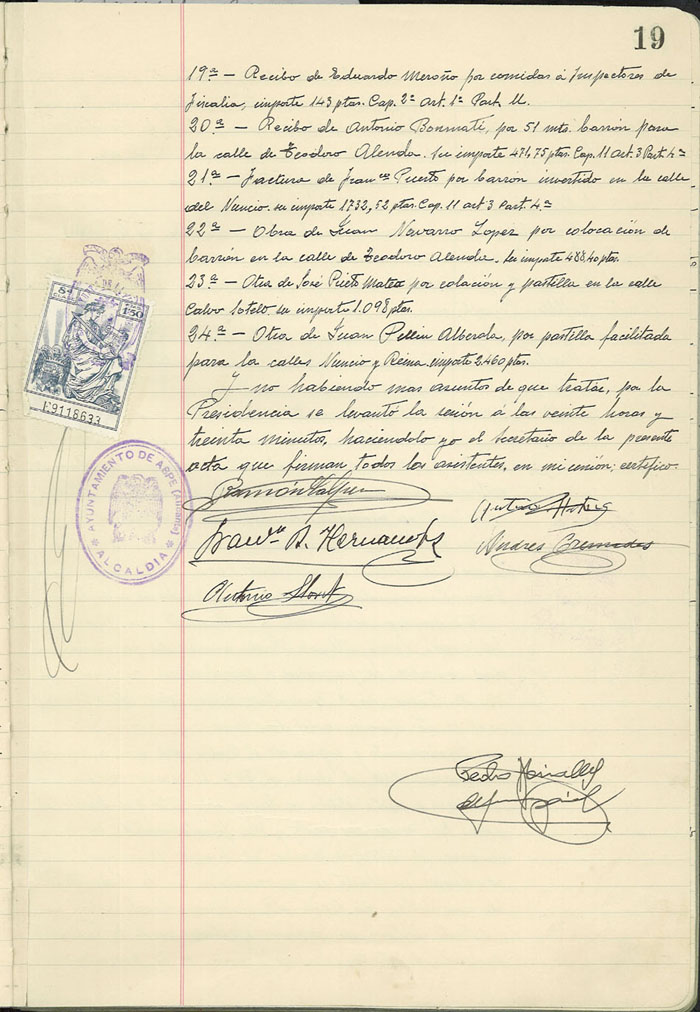 19
19ª — Recibo de Eduardo Meroño por comidas á Inspectores de
Fiscalia, importe 143 ptas. Cap. 2º Art. 1º Part. 11.
20.ª — Recibo de Antonio Bonmatí, por 51 mts. barrón para
la calle de Teodoro Alenda. su importe 471,75 ptas. Cap. 11 art. 3 Part. 4ª
21ª — Factura de Franco Puerto por barron invertido en la calle
del Nuncio. su importe 1732,52 ptas. Cap. 11 art 3 Part. 4.ª
22ª — Obra de Juan Navarro Lopez por colocación de
barrón en la calle de Teodoro Alenda. su importe 488,40 ptas.
23.ª — Otra de José Prieto Mateo por colación y pastilla en la calle
Calvo Sotelo su importe 1.098 ptas.
24.ª — Otra de Juan Pellin Alberola, por pastilla facilitada
para la calles Nuncio y Reina. importe 2.460 ptas.
Y no habiendo mas asuntos de que tratar, por la
Presidencia se levantó la sesión á las veinte horas y
treinta minutos, haciendolo yo el Secretario de la presente
acta que firman todos los asistentes, en mi unión; certifico.
8ª
CLASE
1'50
F9118633
AYUNTAMIENTO DE ASPE (Alicante)
ALCALDIA
Ramón
Franco A. Hernandez
Andres Cremades
Antonio
Pedro